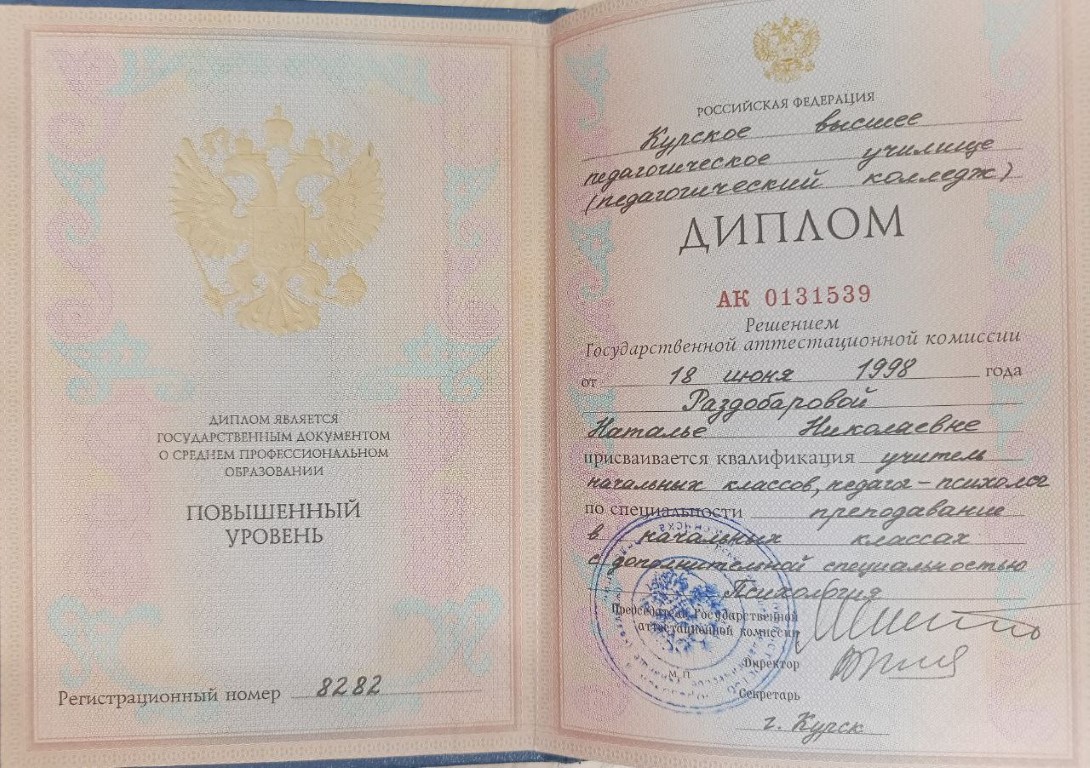 ДИПЛОМ ЯВЛЯЕТСЯ
ГОСУДАРСТВЕННЫМ ДОКУМЕНТОМ
О СРЕДНЕМ ПРОФЕССИОНАЛЬНОМ
ОБРАЗОВАНИИ
ПОВЫШЕННЫЙ
УРОВЕНЬ
Регистрационный номер 8282
РОССИЙСКАЯ ФЕДЕРАЦИЯ
Курское высшее
педагогическое училище
(педагогический колледж)
ДИПЛОМ
АК 0131539
Решением
Государственной аттестационной комиссии
от 18 июня 1998 года
Раздобаровой
Наталье Николаевне
присваивается квалификация учитель
начальных классов, педагог-психолог
по специальности преподавание
в начальных классах
с дополнительной специальностью
Психология
Председатель Государственной
аттестационной комиссии
Директор
Секретарь
г. Курск